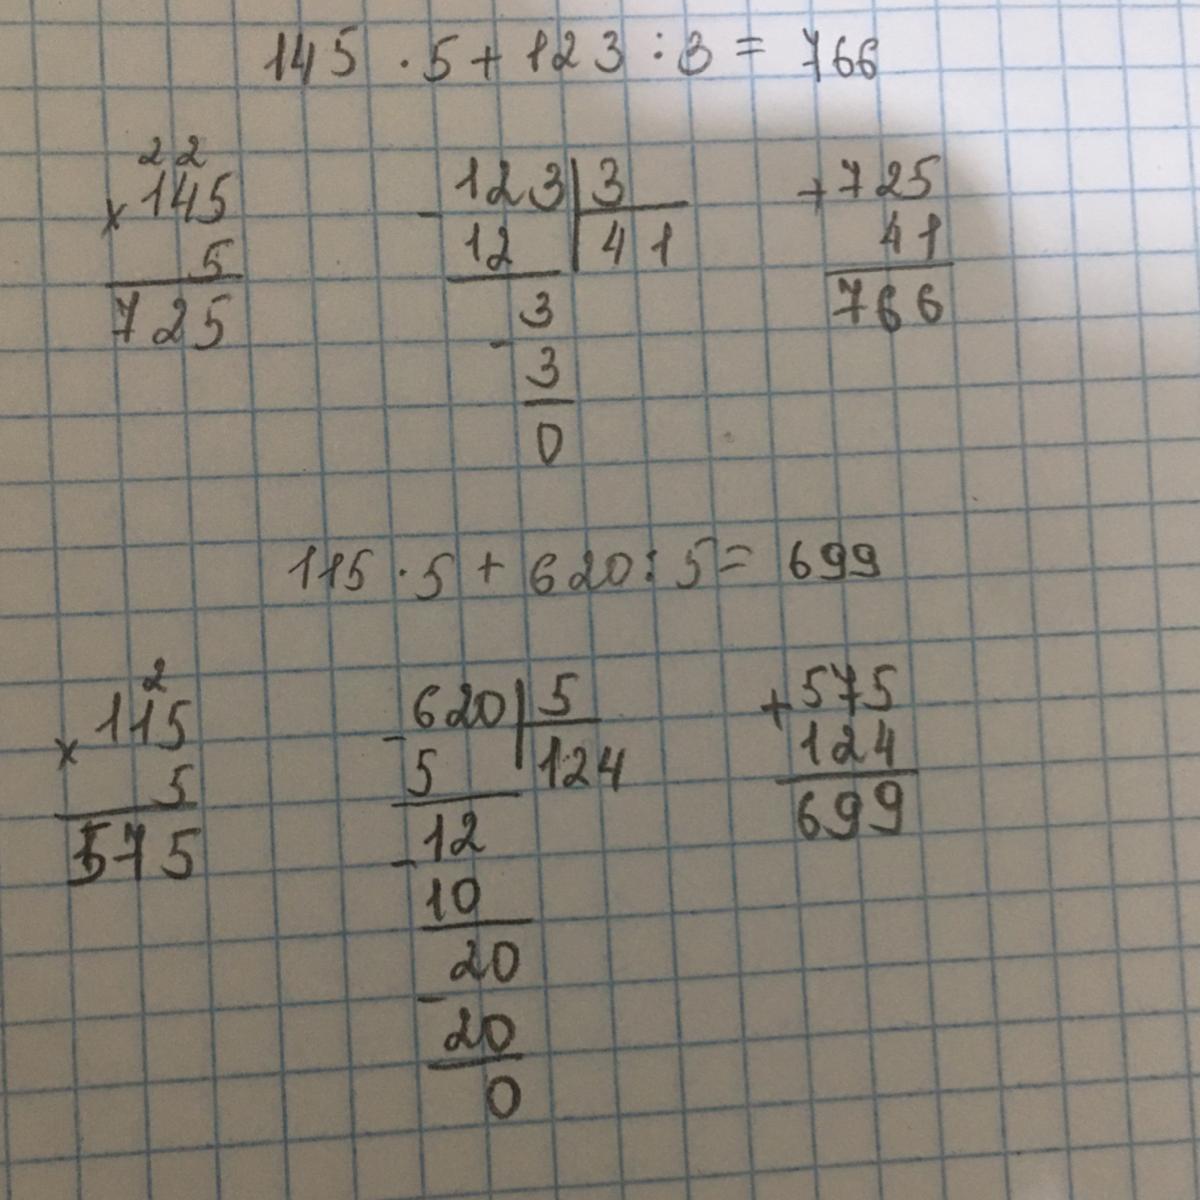 145 · 5 + 123 : 3 = 766
22
× 145
5
725
- 123 | 3
12 | 41
3
- 3
0
+ 725
41
766
115 · 5 + 620 : 5 = 699
2
× 115
5
575
- 620 | 5
5 | 124
- 12
10
20
- 20
0
+ 575
124
699